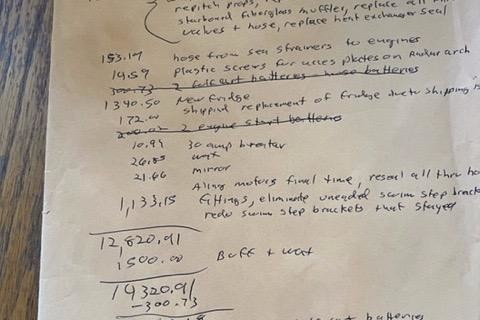 repitch props,
starboard fiberglass muffler, replace all
valves + hose, replace heat exchanger seal
153.17 hose from sea strainers to engines
14.59 plastic screws for acces plates on Radar arch
300.73 2 batteries - house batteries
1340.50 New fridge
172.00 shipping replacement of fridge due to shipping
200.02 2 engine start batteries
10.99 30 amp breaker
26.85
21.66 mirror
Aling motors final time, reseal all thru
1,133.15 fittings, eliminate uneeded swim step
redo swim step brackets that stayed
12,820.91
1500.00 Buff + wax
14320.91
-300.73
batteries